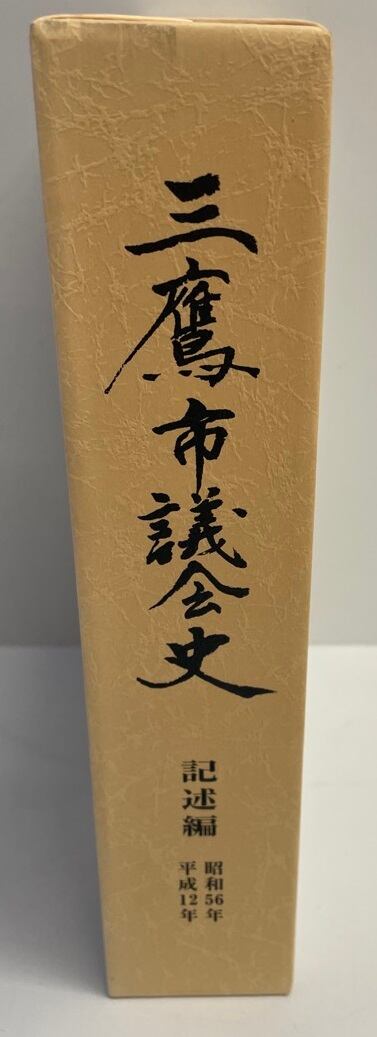 三鷹市議会史
記述編
昭和56年
平成12年